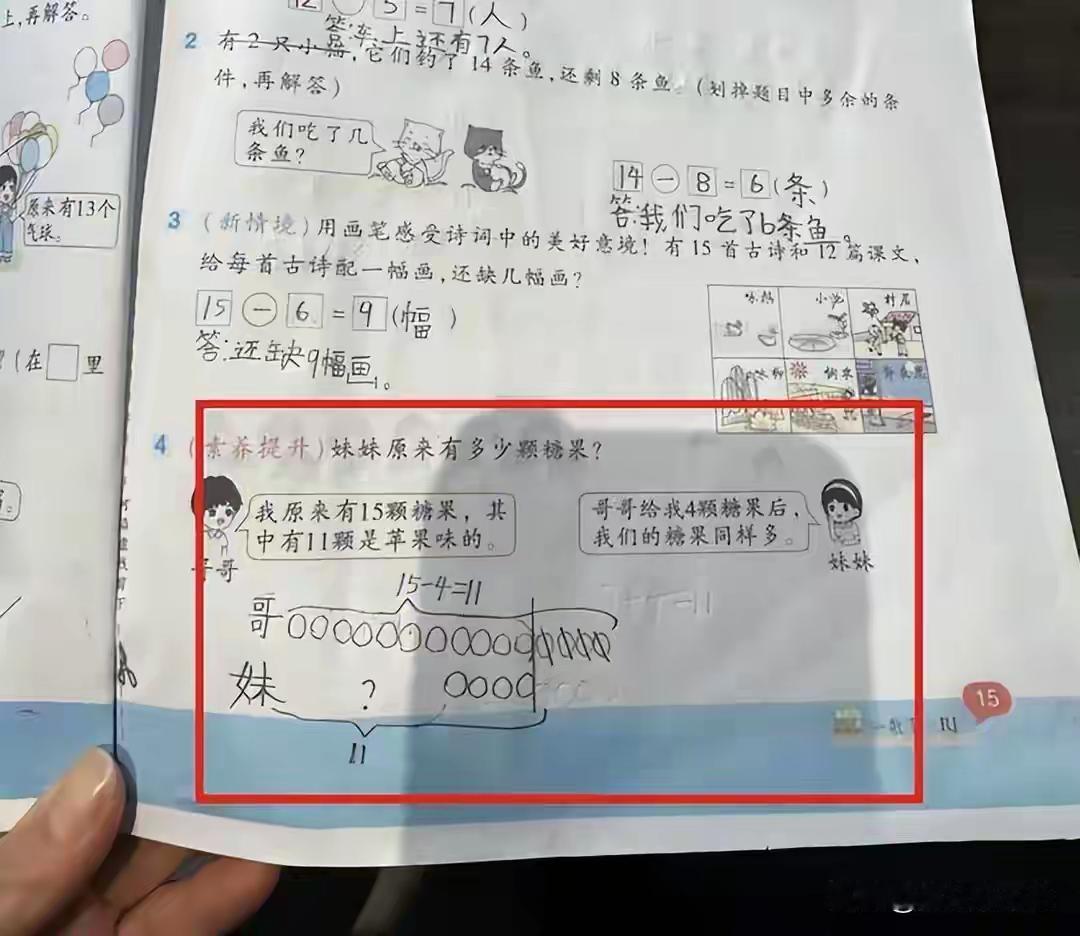 上,再解答。
12 ○ 5 = 7 (人)
答:车上还有7人。
2 有2只小猫,它们钓了14条鱼,还剩8条鱼。(划掉题目中多余的条
件,再解答)
我们吃了几
条鱼?
14 − 8 = 6 (条)
答:我们吃了6条鱼。
原来有13个
气球。
3 (新情境)用画笔感受诗词中的美好意境!有15首古诗和12篇课文,
给每首古诗配一幅画,还缺几幅画?
15 − 6 = 9 (幅)
答:还缺9幅画。
咏鹅 小池 村居
(在□里
4 (素养提升)妹妹原来有多少颗糖果?
我原来有15颗糖果,其
中有11颗是苹果味的。
哥哥
哥哥给我4颗糖果后,
我们的糖果同样多。
妹妹
15-4=11
哥
妹 ?
11
15